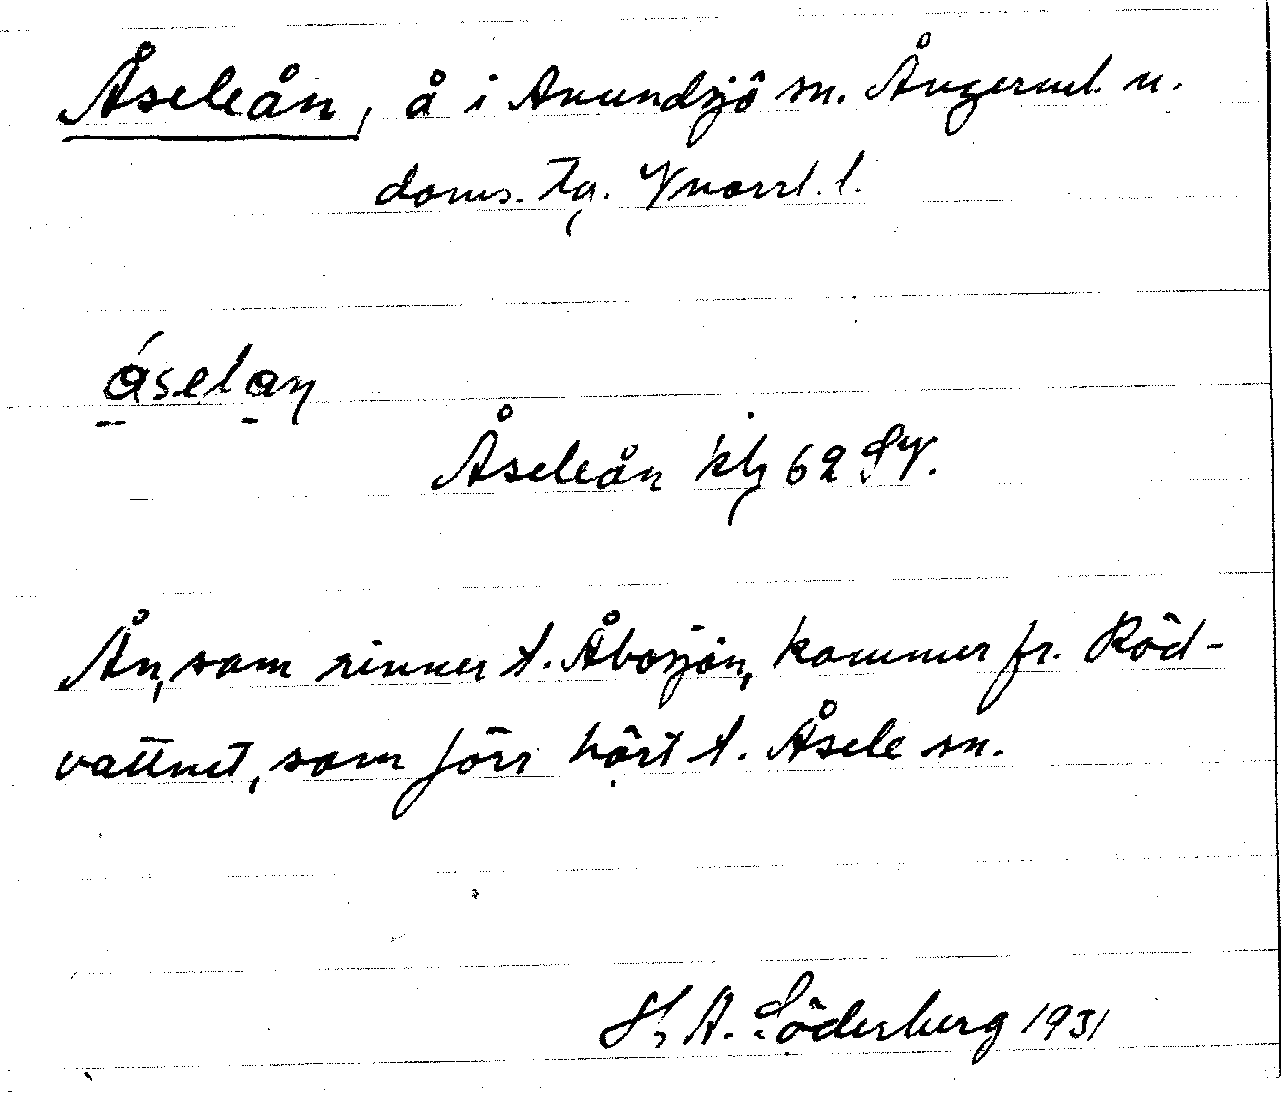 Åseleån, å i Anundsjö sn. Ångerml. n.
doms. tg. Vnorrl. l.
åselan
Åseleån kbl 62 SV.
Ån, som rinner t. Åbosjön, kommer fr. Röd-
vattnet, som förr hört t. Åsele sn.
H. A. Söderberg 1931